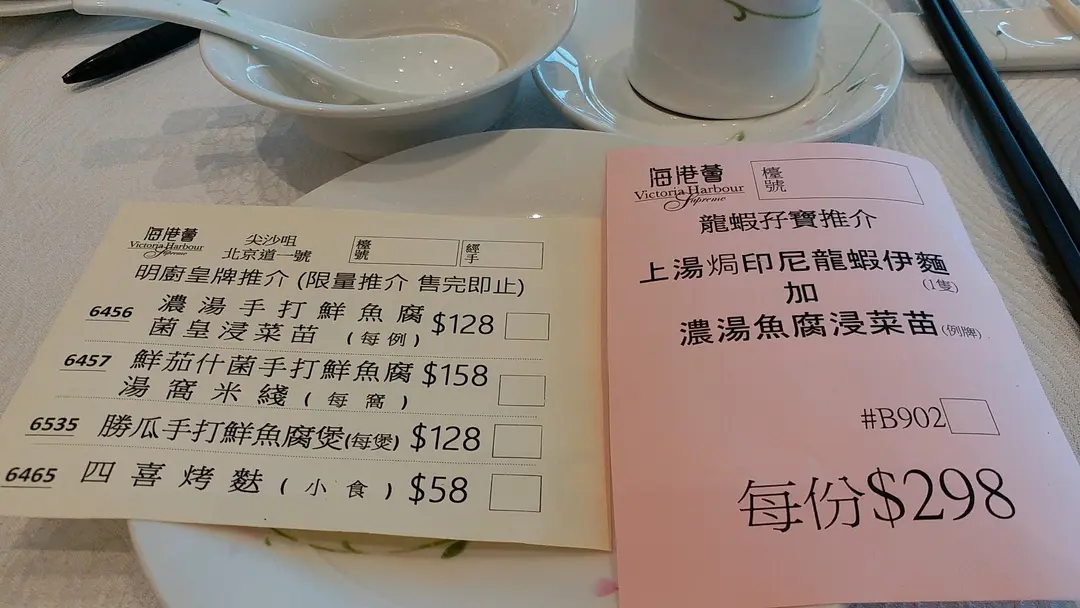 海港薈
Victoria Harbour
Supreme
尖沙咀
北京道一號
檯號
經手
明廚皇牌推介 (限量推介 售完即止)
6456
濃湯手打鮮魚腐
菌皇浸菜苗 (每例)
$128
6457
鮮茄什菌手打鮮魚腐
湯窩米綫 (每窩)
$158
6535
勝瓜手打鮮魚腐煲(每煲)
$128
6465
四喜烤麩 (小食)
$58
海港薈
Victoria Harbour
Supreme
檯號
龍蝦孖寶推介
上湯焗印尼龍蝦伊麵
(1隻)
加
濃湯魚腐浸菜苗(例牌)
#B902
每份$298